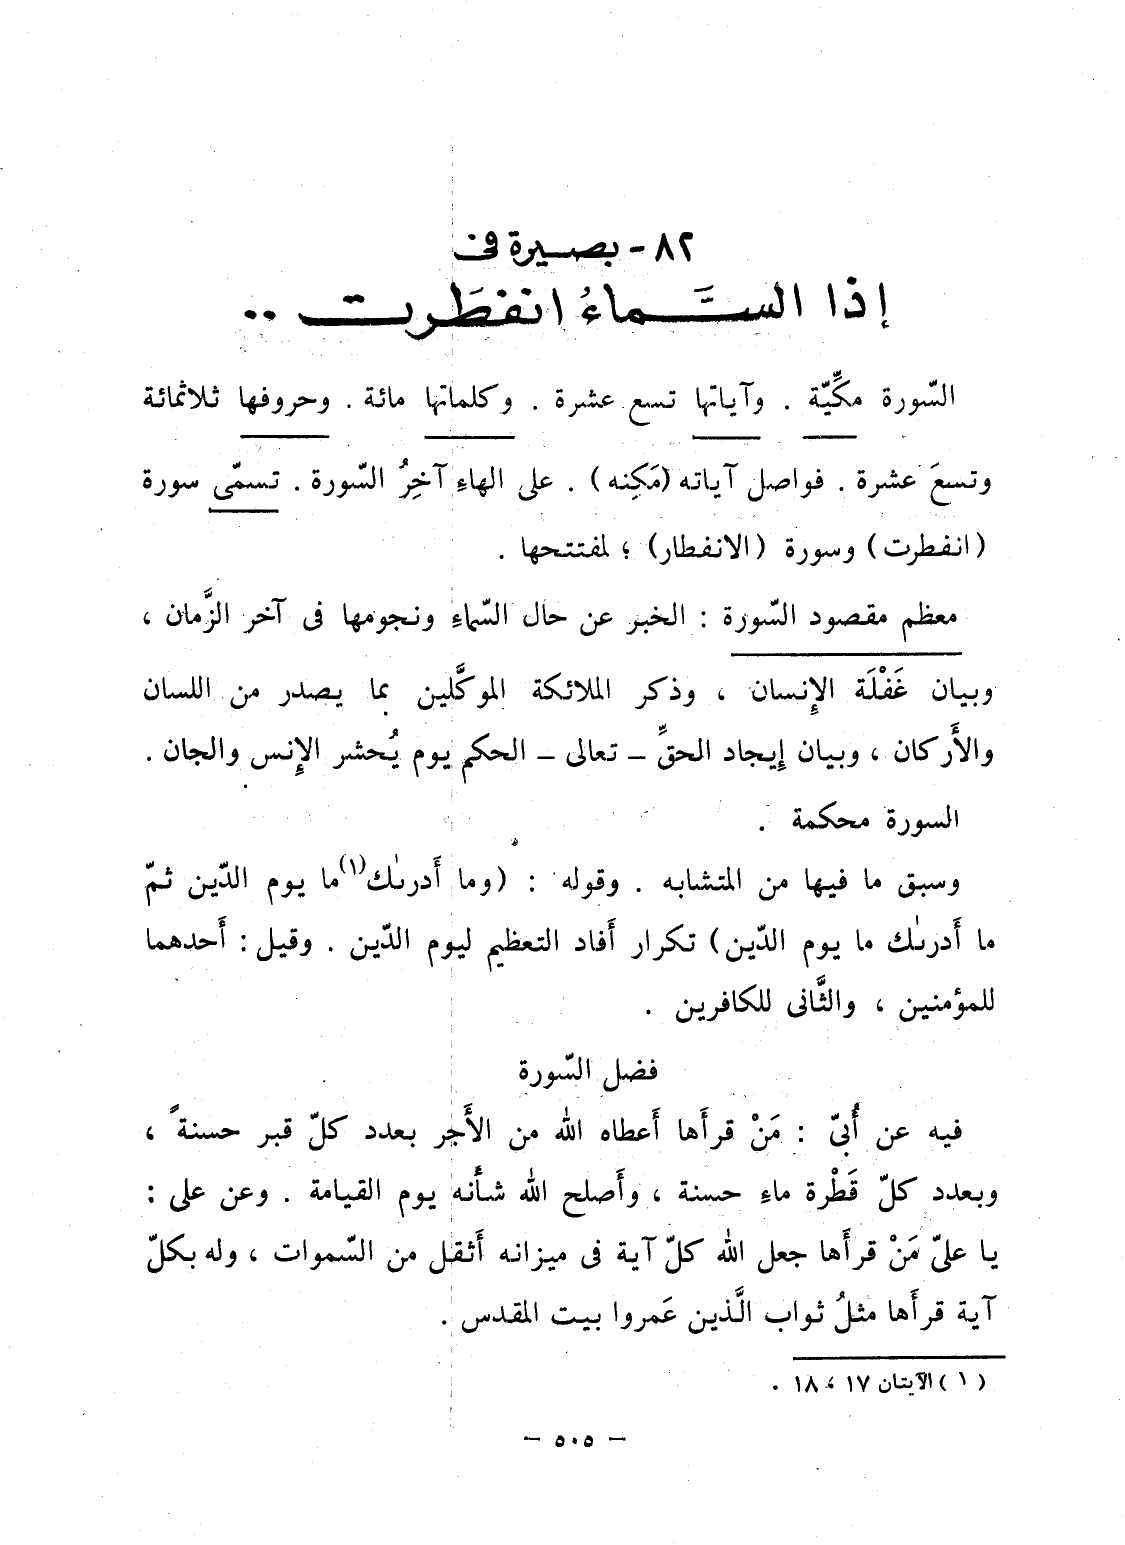 ٨٢ - بصيرة فى
إذا السَّماءُ انفطَرت ..
السّورة مكِّيّة . وآياتها تسع عشرة . وكلماتها مائة . وحروفها ثلاثمائة
وتسعَ عشرة . فواصل آياته (مَكِنه) . على الهاءِ آخِرُ السّورة . تسمّى سورة
(انفطرت) وسورة (الانفطار) ؛ لمفتتحها .
معظم مقصود السّورة : الخبر عن حال السّماءِ ونجومها فى آخر الزَّمان ،
وبيان غَفْلَة الإِنسان ، وذكر الملائكة الموكَّلين بما يصدر من اللسان
والأَركان ، وبيان إِيجاد الحقِّ – تعالى – الحكم يوم يُحشر الإِنس والجان .
السورة محكمة .
وسبق ما فيها من المتشابه . وقوله : (وما أَدرىٰك(١) ما يوم الدّين ثمّ
ما أَدرىٰك ما يوم الدّين) تكرار أَفاد التعظيم ليوم الدّين . وقيل : أَحدهما
للمؤمنين ، والثَّانى للكافرين .
فضل السّورة
فيه عن أُبىّ : مَنْ قرأَها أَعطاه الله من الأَجر بعدد كلّ قبر حسنة ً ،
وبعدد كلّ قَطْرة ماءِ حسنة ، وأَصلح الله شأْنه يوم القيامة . وعن على :
يا علىّ مَنْ قرأَها جعل الله كلّ آية فى ميزانه أَثقل من السّموات ، وله بكلّ
آية قرأَها مثلُ ثواب الَّذين عَمروا بيت المقدس .
( ١ ) الآيتان ١٧ ، ١٨ .
– ٥٠٥ –